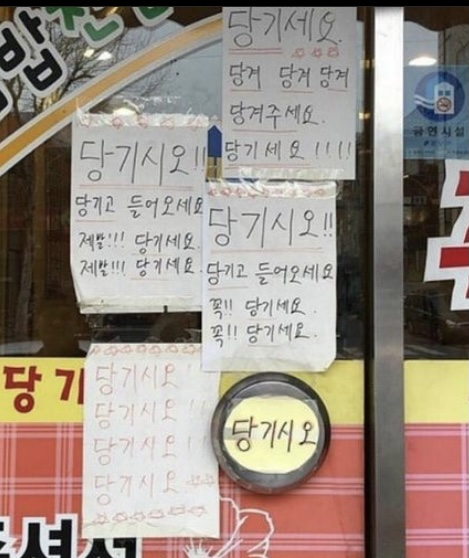 밥
당기세요.
당겨 당겨 당겨
당겨주세요.
당기세요!!!!
금연시설
당기시오!!
당기고 들어오세요
제발!!! 당기세요.
제발!!! 당기세요.
당기시오!!
당기고 들어오세요
꼭!! 당기세요.
꼭!! 당기세요.
당기
당기시오!!
당기시오!!
당기시오!!
당기시오
당기시오
주셔서